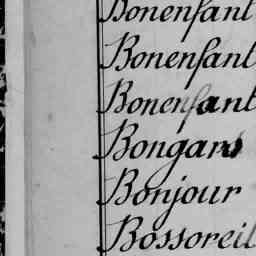 Bonenfant
Bonenfant
Bonenfant
Bongars
Bonjour
Bossoreil